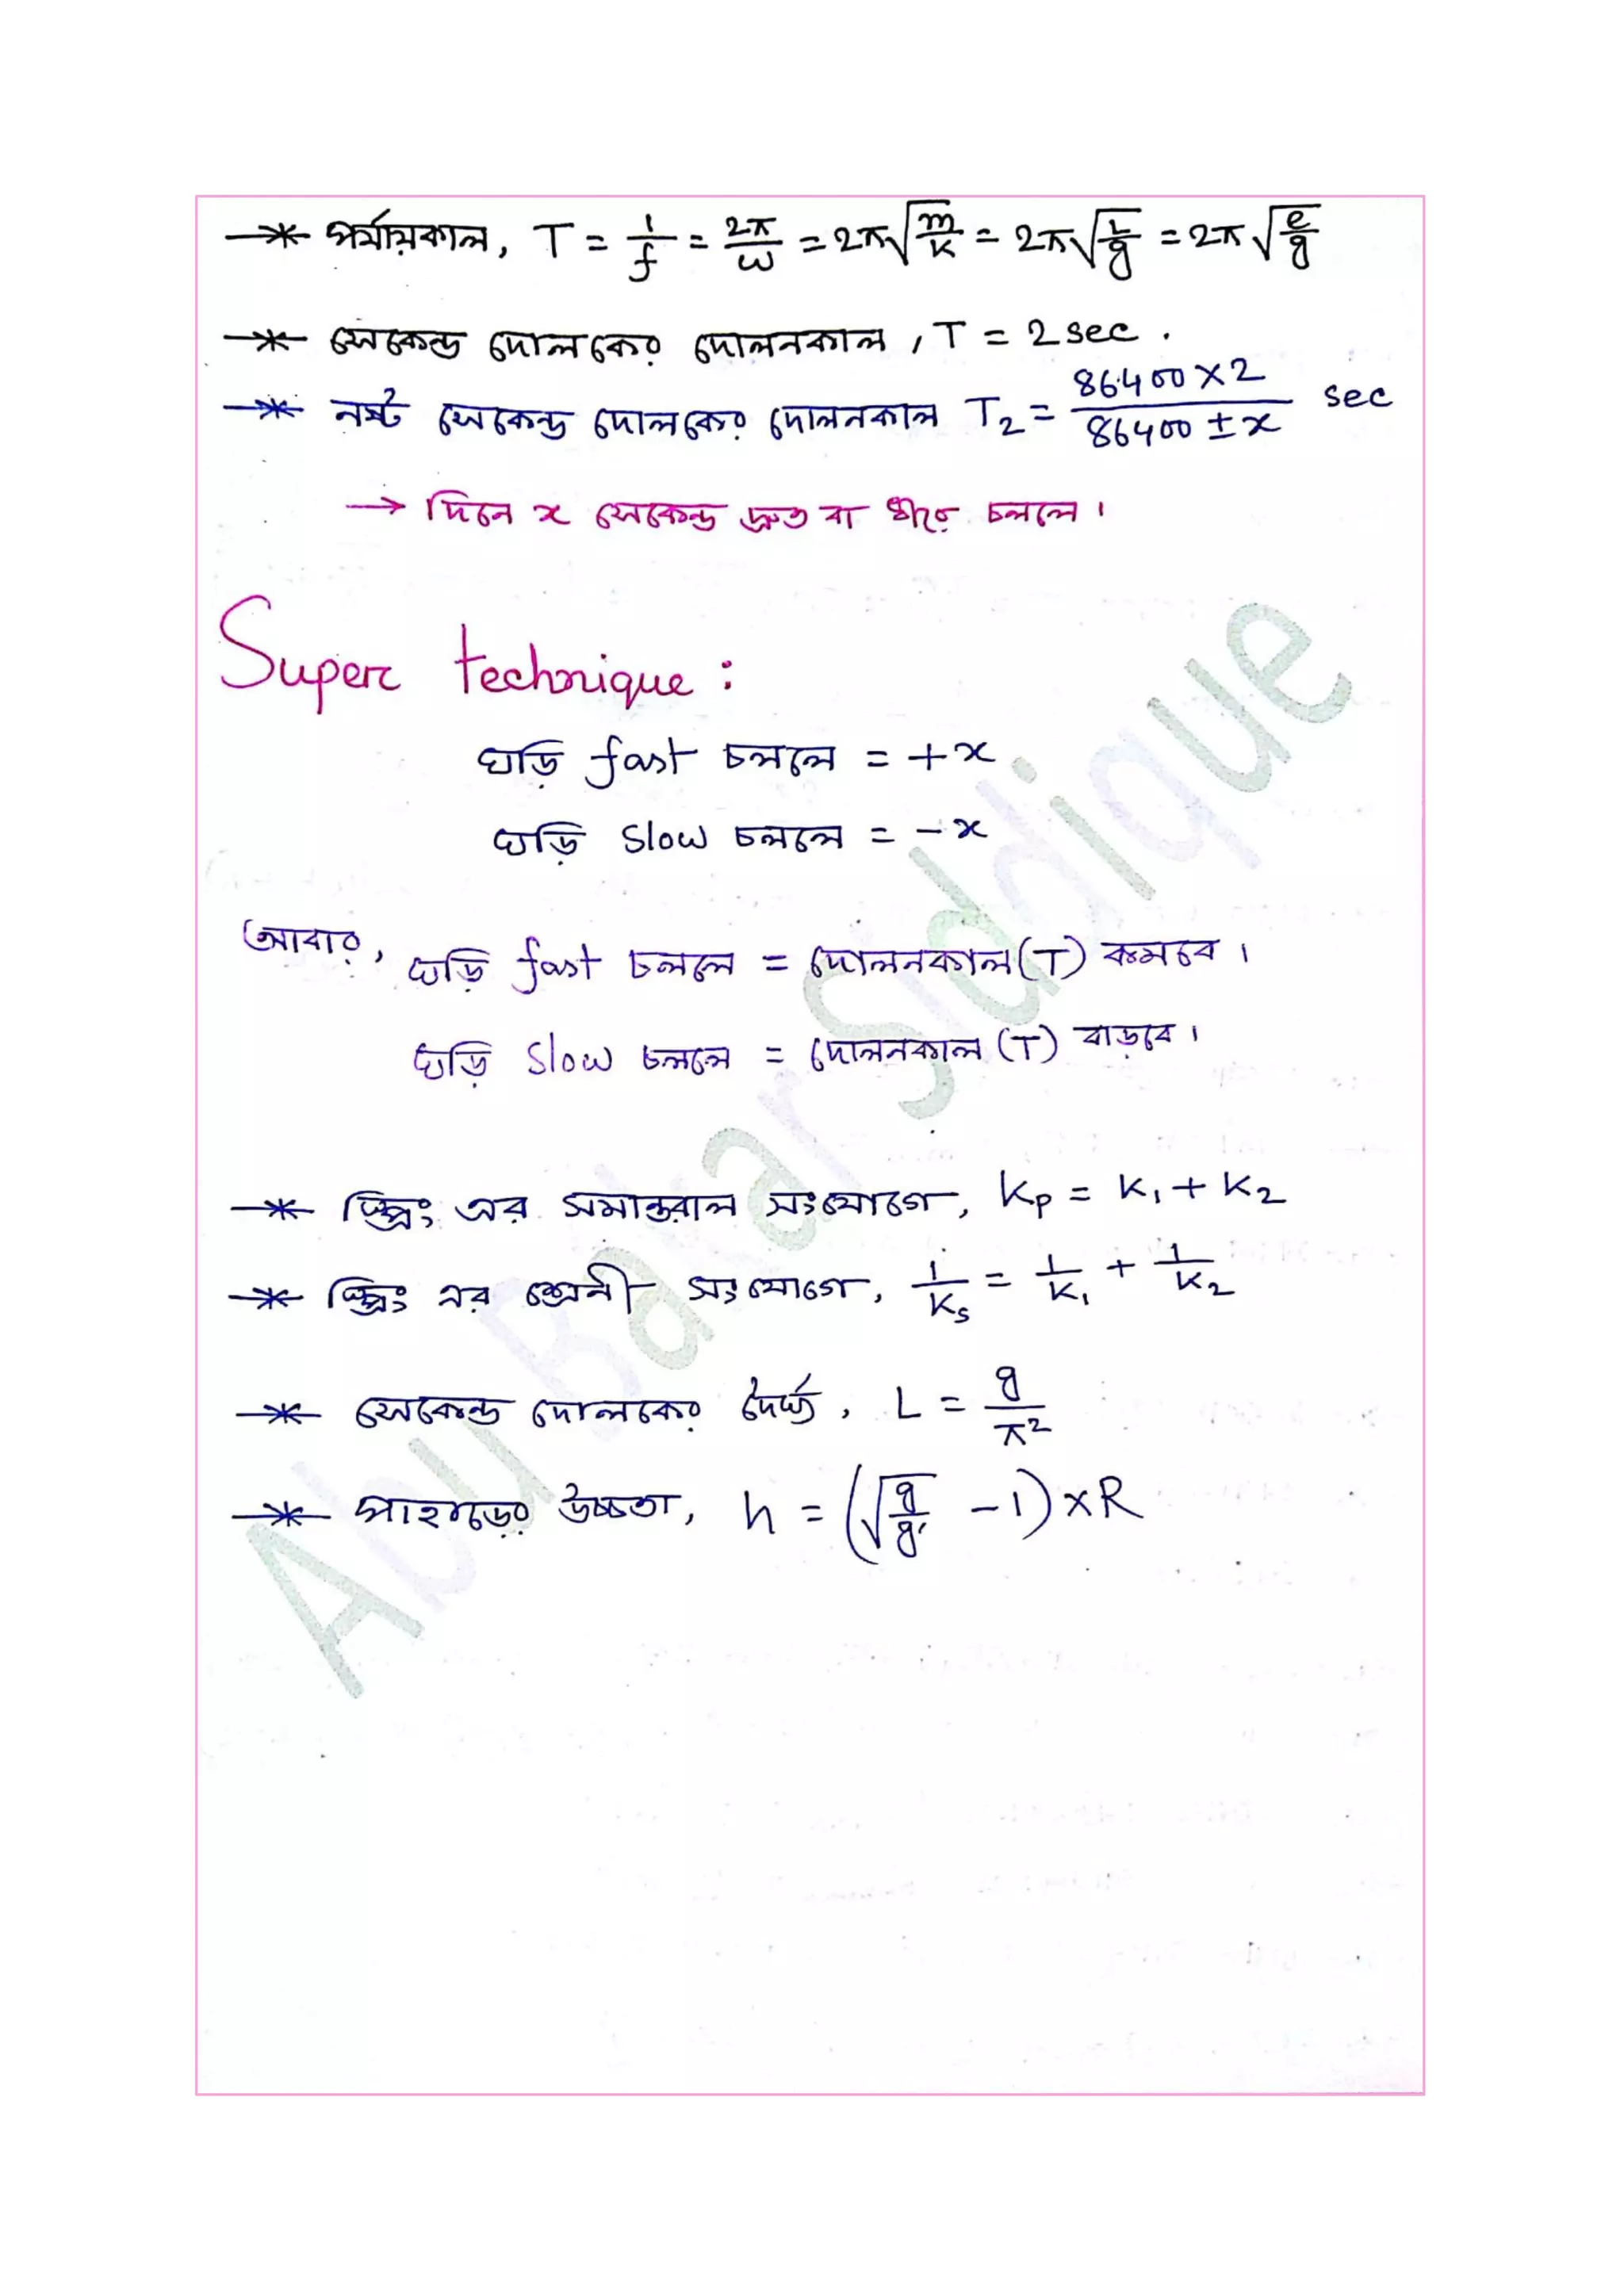 →* পর্যায়কাল, T = 1/f = 2π/ω = 2π√(m/k) = 2π√(L/g) = 2π√(e/g)
→* সেকেন্ড দোলকের দোলনকাল, T = 2 sec.
→* নষ্ট সেকেন্ড দোলকের দোলনকাল T₂ = (86400 × 2)/(86400 ± x) sec
→ দিনে x সেকেন্ড দ্রুত বা ধীরে চললে।
Super technique:
ঘড়ি fast চললে = +x
ঘড়ি slow চললে = -x
আবার, ঘড়ি fast চললে = দোলনকাল (T) কমবে।
ঘড়ি slow চললে = দোলনকাল (T) বাড়বে।
→* স্প্রিং এর সমান্তরাল সংযোগে, Kp = K₁ + K₂
→* স্প্রিং এর শ্রেনী সংযোগে, 1/Ks = 1/K₁ + 1/K₂
→* সেকেন্ড দোলকের দৈর্ঘ্য, L = g/π²
→* পাহাড়ের উচ্চতা, h = (√(g/g') - 1) × R
Abu Bakar Siddique